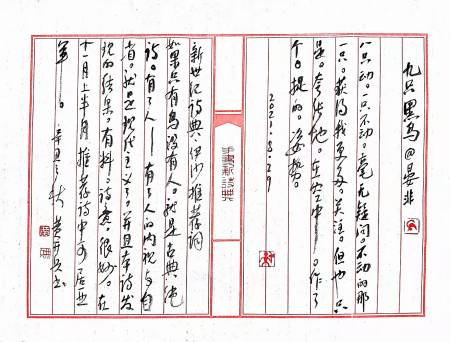 九只黑鸟@晏非
八只动。一只不动。毫无疑问。不动的那
一只。获得我更多。关注。但也只
是。夸张地。在空中——。作了
个。提的。姿势。
2021.8.29
新世纪诗典·伊沙推荐词
如果只有鸟没有人。就是古典
诗。有了人——有了人的内视与自
省。就是现代主义了。并且本诗发
现的结果。有料。诗意。很妙。在
十一月上半月推荐诗中可居亚
军——。辛丑之秋 黄开兵书